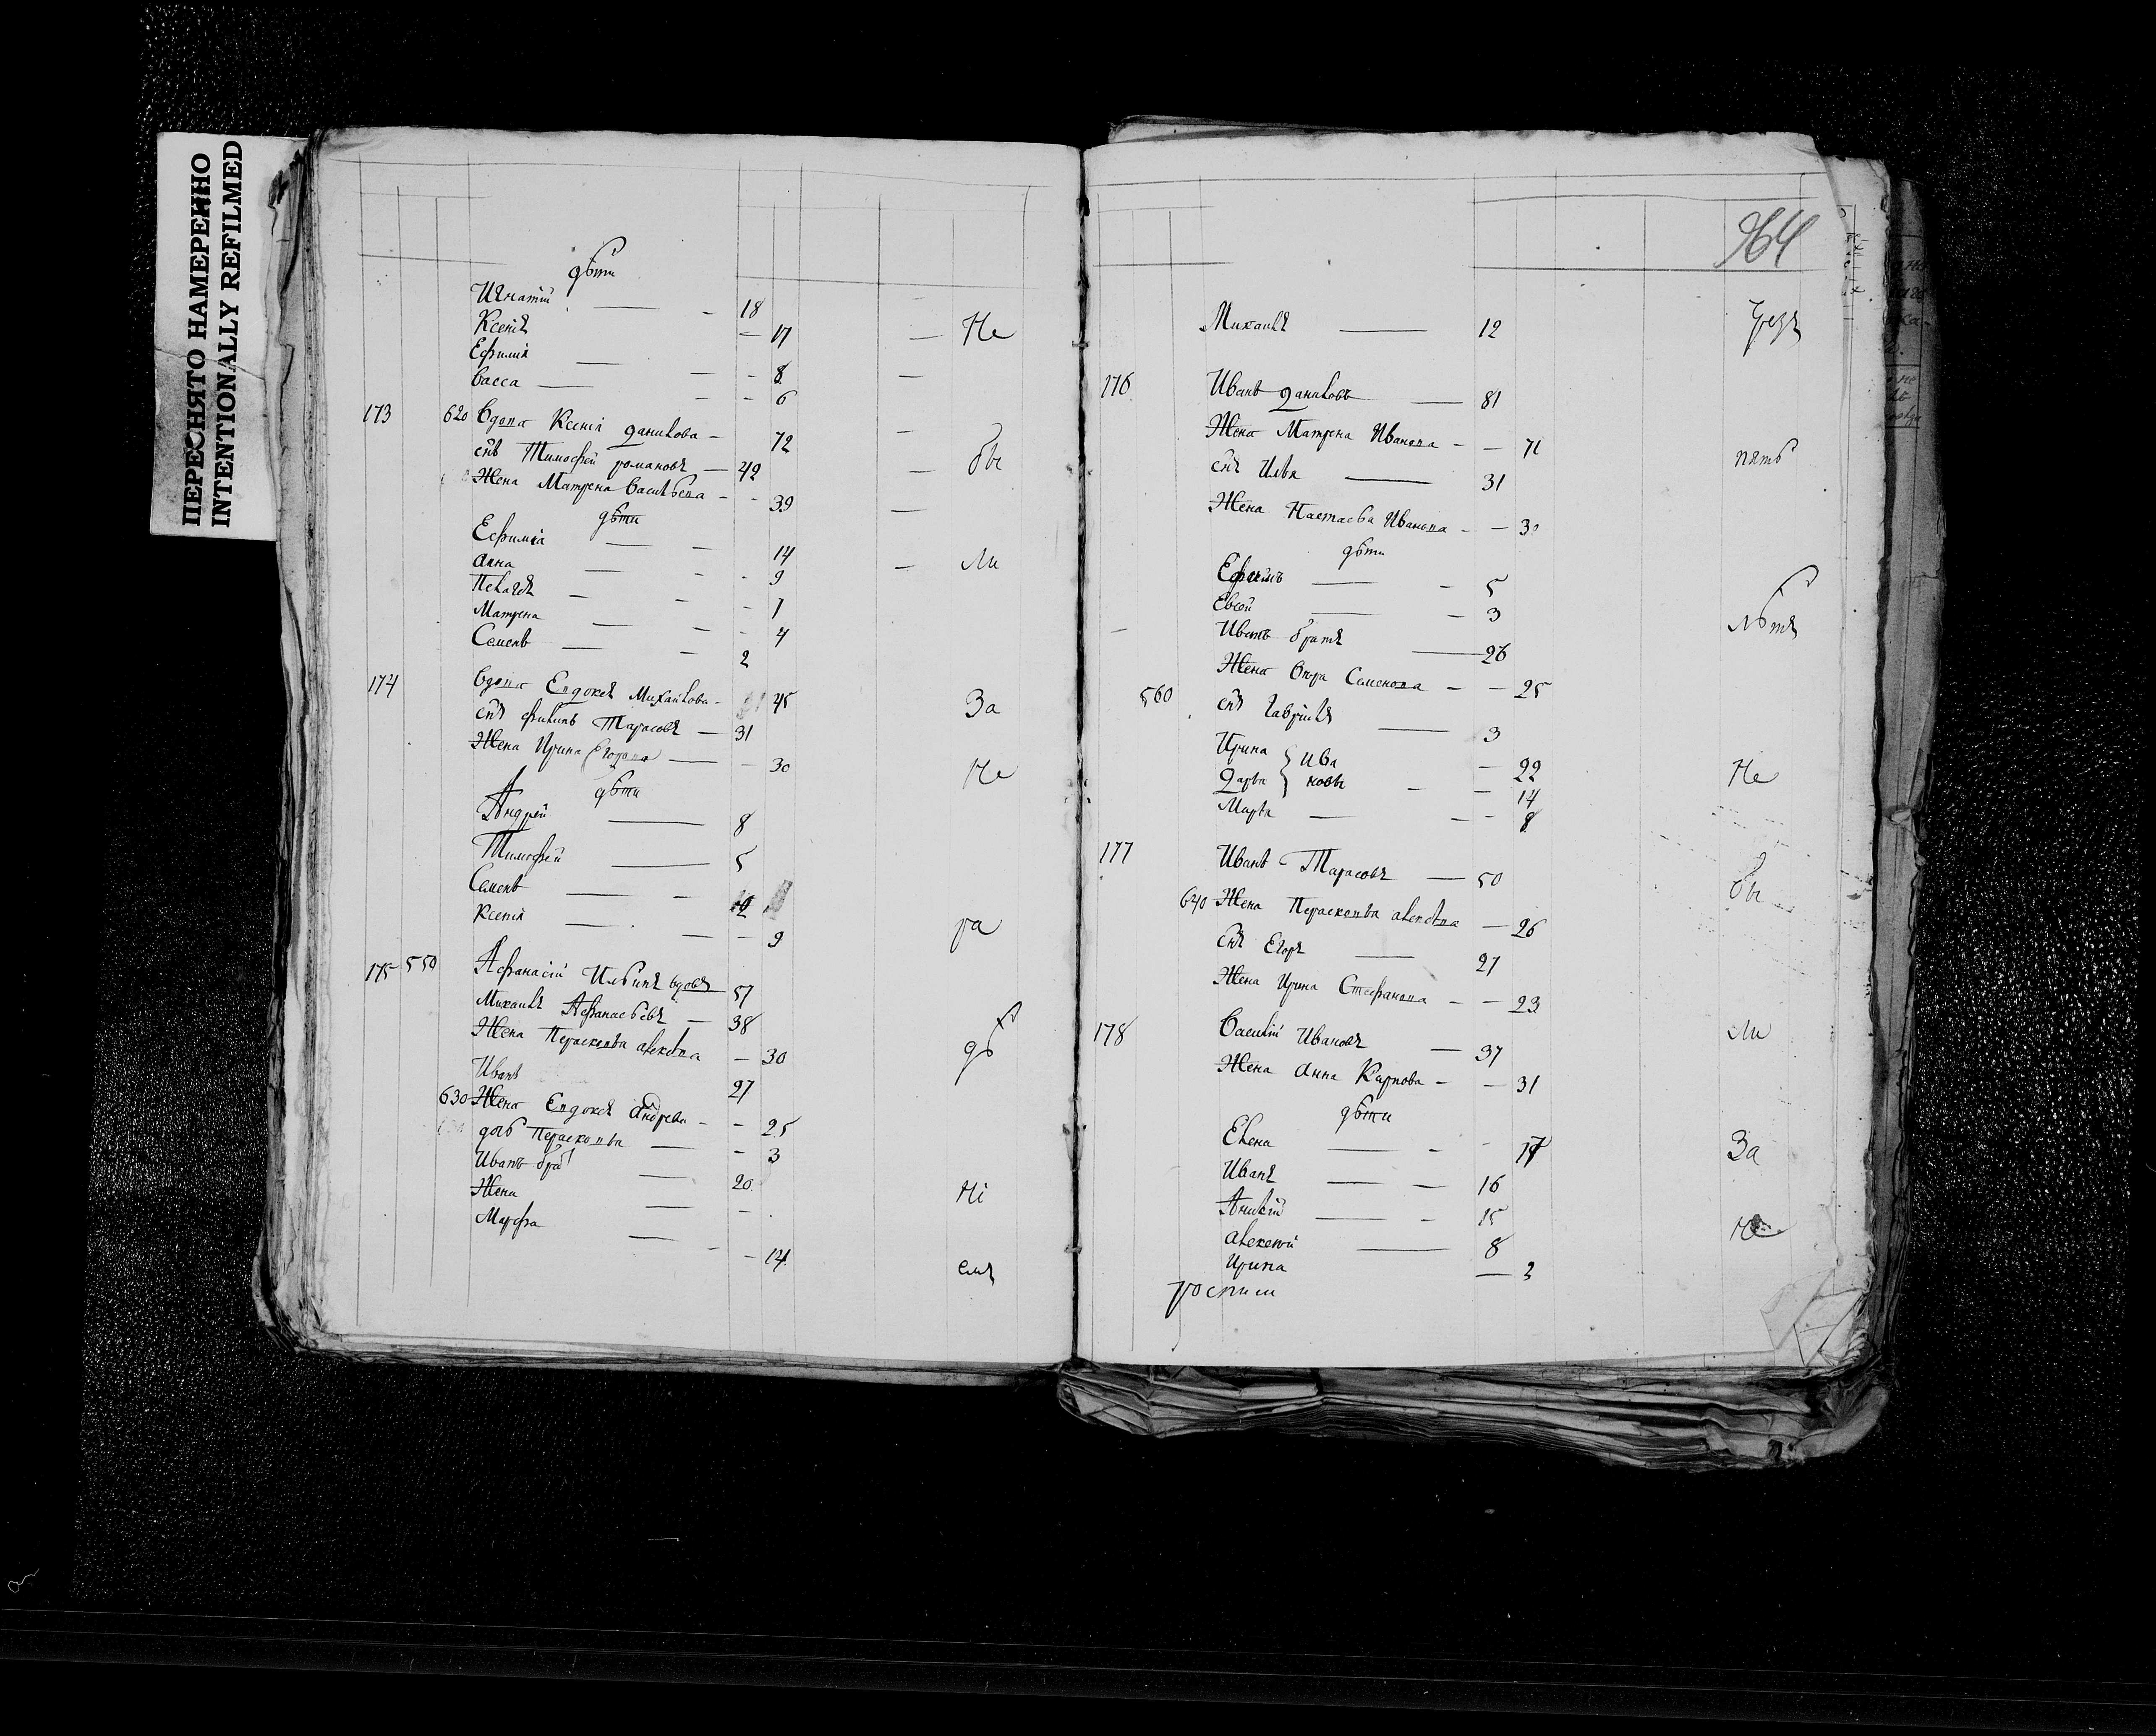 ПЕРЕСНЯТО НАМЕРЕННО
INTENTIONALLY REFILMED
дѣти
Игнатій — - 18
Ксенія — 17 — Не
Ефимія — — - 8 —
Васса — — - 6
173 620 Вдова Ксенія Данилова — 72 —
снъ Тимофей романовъ — 42 — бы
Жена Матрена Васильева - - 39 —
дѣти
Ефимія — — 14
Анна — - - 9 — ли
Пелагея — — - 7
Матрена — — - 4
Семенъ — — 2
174 Вдова Евдокея Михайлова - 45 За
снъ Филипъ Тарасовъ — 31
Жена Ирина Егорова — — 30 Не
дѣти
Андрей — 8
Тимофей — 5
Семенъ — — 2
Ксенія — — — 9 ра
175 550 Афанасій Ильинъ вдовъ 57
Михаилъ Афанасьевъ — 38
Жена Парасковья алексѣва — 30 дѣ
Иванъ 27
630 Жена Евдокея Андрева - - 25
дочь Парасковья — - 3
Иванъ братъ — 20
Жена — - Ні
Марфа — - - 14
емъ
964
Михаилъ — 12 Чрезъ
176 Иванъ Даниловъ — 81
Жена Матрена Иванова - — 71 пять
снъ Илья — 31
Жена Настасья Иванова - — 30
дѣти
Ефимъ — - 5
Евсей — - 3 лѣтъ
Иванъ братъ — 26
Жена Вѣра Семенова — — 25
560 снъ Гаврилъ — 3
Ирина } Ива — 22 Не
Дарья } новы - — 14
Марья — — - 8
177 Иванъ Тарасовъ — 50 бы
640 Жена Парасковья алексѣва — 26
снъ Егоръ — 27
Жена Ирина Стефанова - — 23
ли
178 Василій Ивановъ — 37
Жена Анна Карпова - — 31
дѣти
Елена — - - 17 За
Иванъ — — 16
Аникій — - 15
алексей — 8 Не
Ирина — 3
росписи